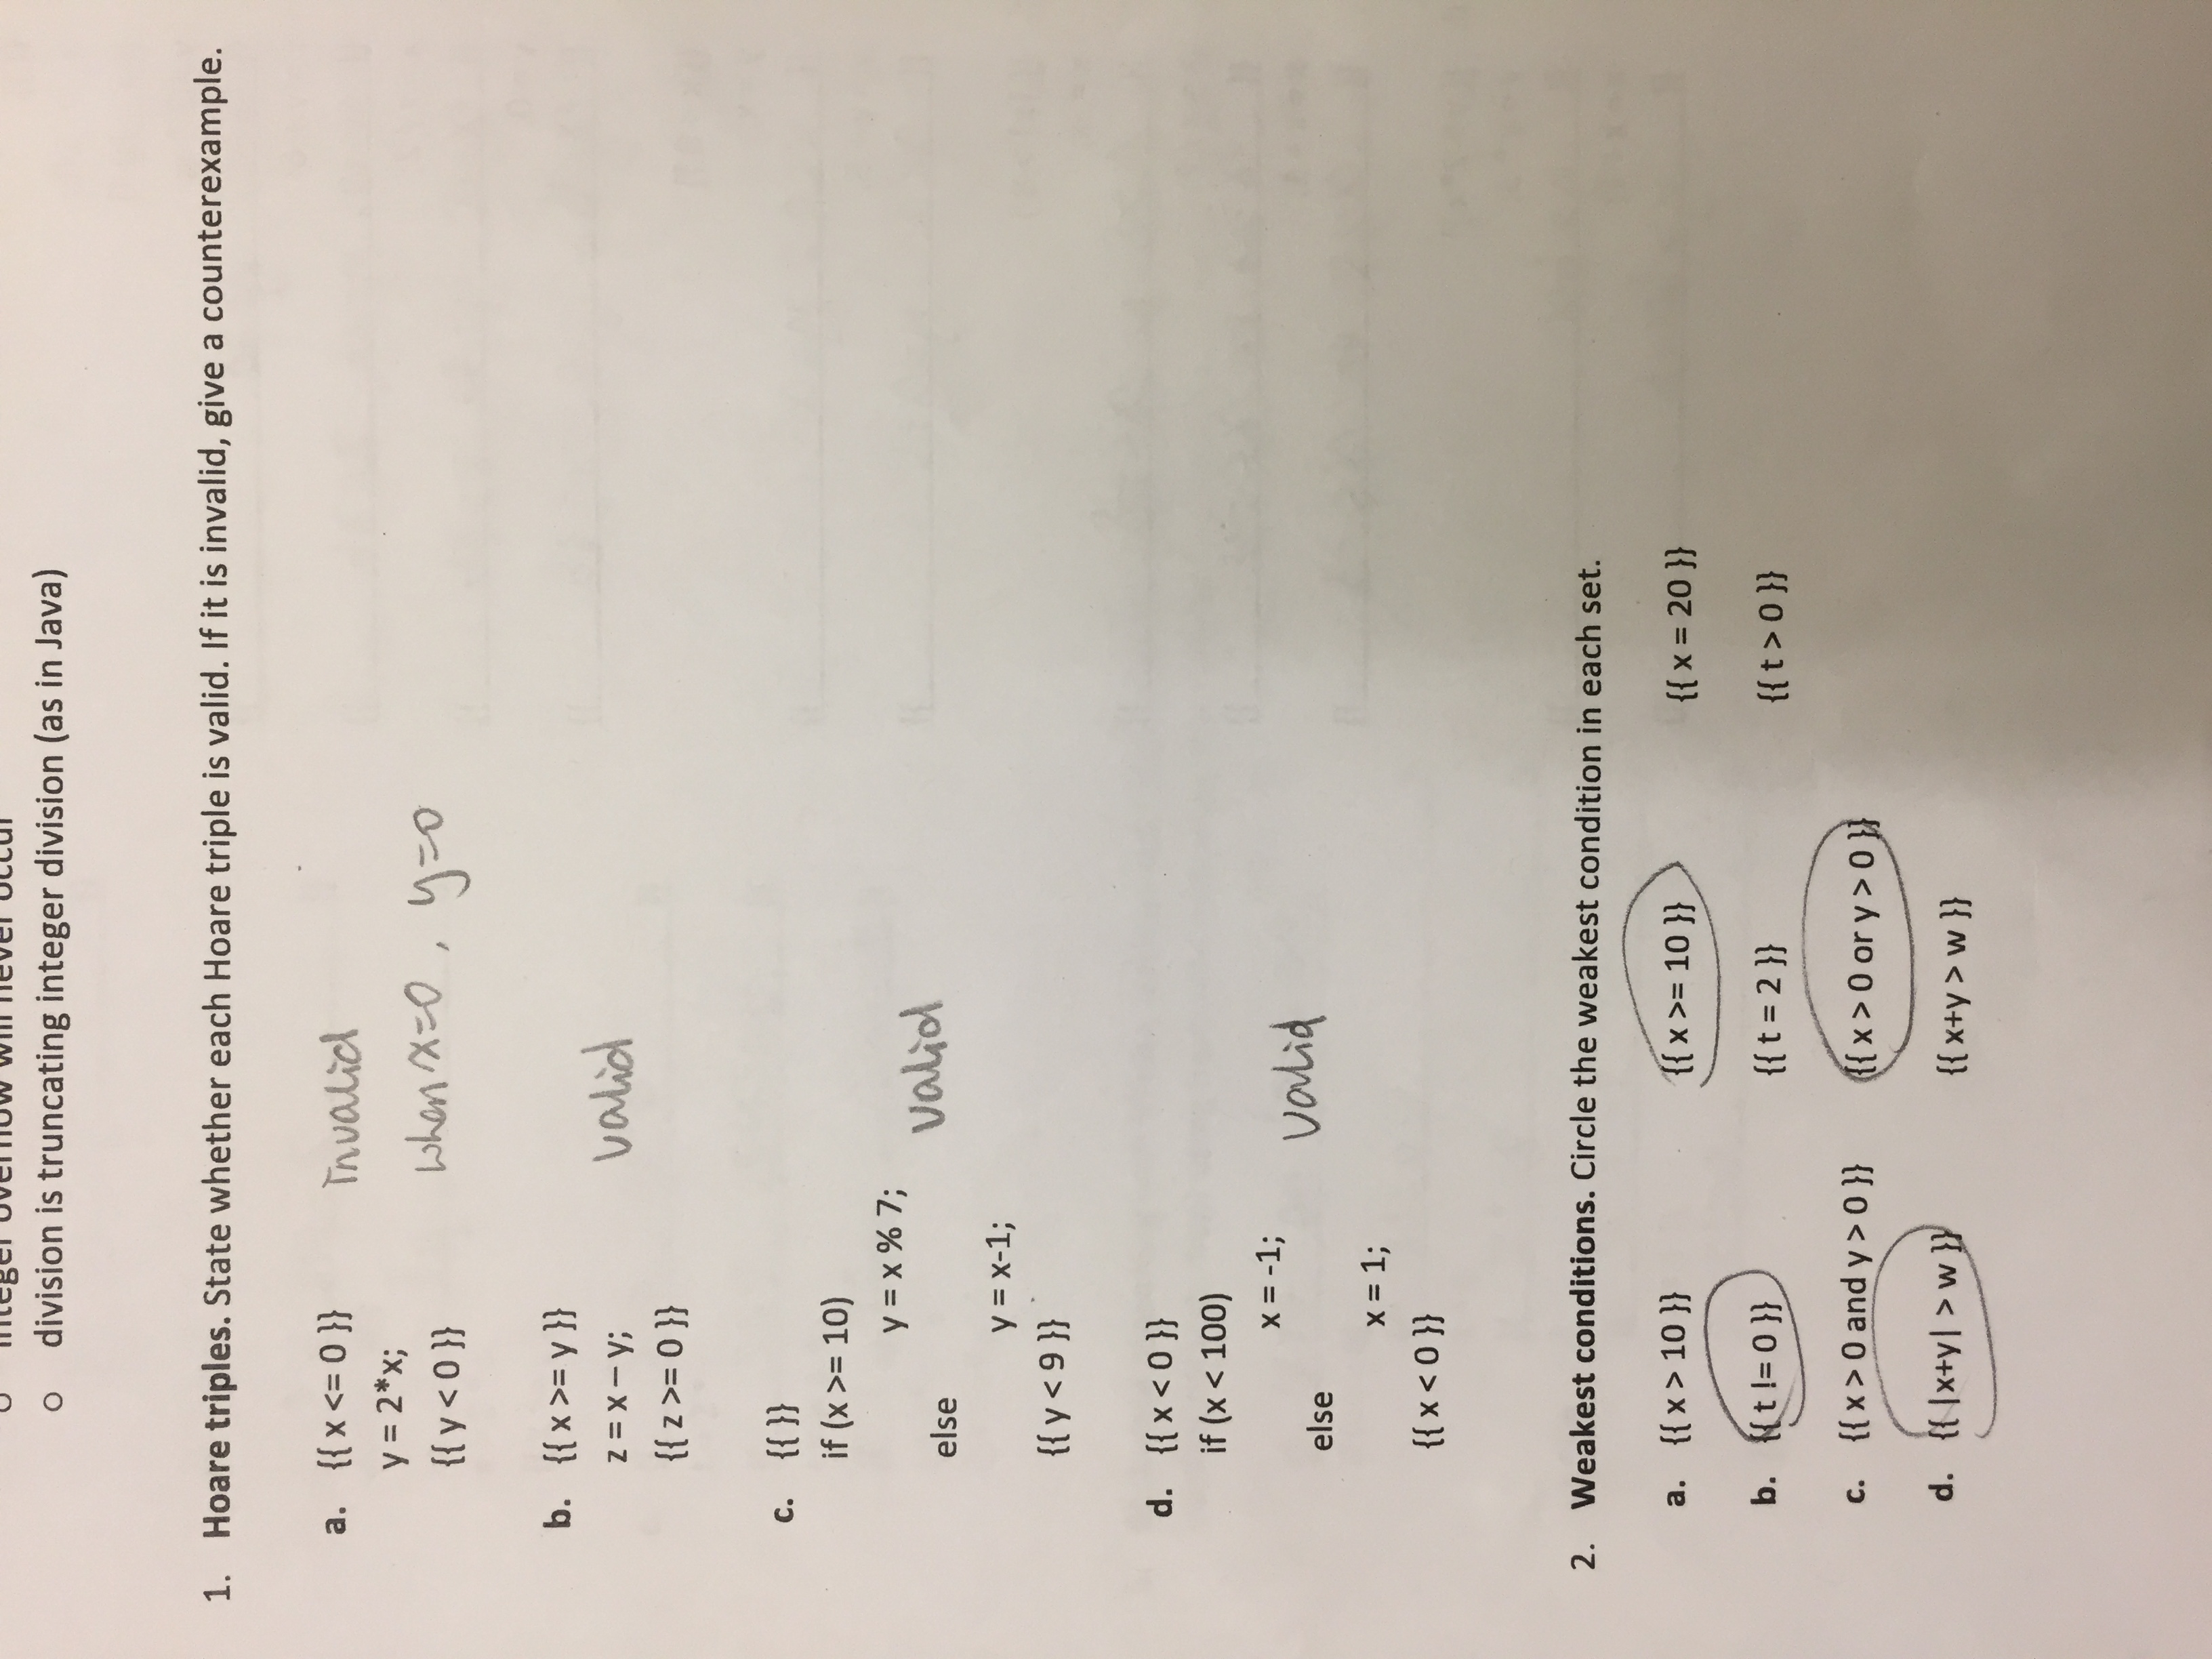 integer overflow will never occur
o division is truncating integer division (as in Java)
1. Hoare triples. State whether each Hoare triple is valid. If it is invalid, give a counterexample.
a. {{ x <= 0 }} Invalid
y = 2*x;
when x=0, y=0
{{ y < 0 }}
b. {{ x >= y }}
z = x – y; valid
{{ z >= 0 }}
c. {{ }}
if (x >= 10)
y = x % 7;
valid
else
y = x-1;
{{ y < 9 }}
d. {{ x < 0 }}
if (x < 100)
x = -1;
valid
else
x = 1;
{{ x < 0 }}
2. Weakest conditions. Circle the weakest condition in each set.
a. {{ x > 10 }} {{ x >= 10 }} {{ x = 20 }}
b. {{ t != 0 }} {{ t = 2 }} {{ t > 0 }}
c. {{ x > 0 and y > 0 }} {{ x > 0 or y > 0 }}
d. {{ |x+y| > w }} {{ x+y > w }}